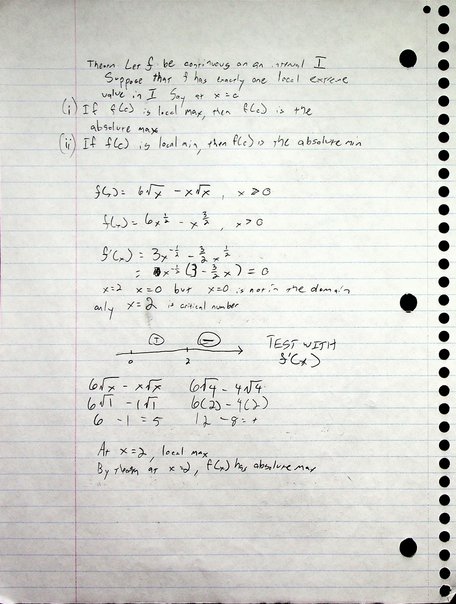 Theorem Let f be continuous on an interval I
Suppose that f has exactly one local extreme
value in I Say at x = c
(i) If f(c) is local max, then f(c) is the
absolute max
(ii) If f(c) is local min, then f(c) is the absolute min
f(x) = 6√x - x√x , x ≥ 0
f(x) = 6x^(1/2) - x^(3/2) , x > 0
f'(x) = 3x^(-1/2) - 3/2 x^(1/2)
= x^(-1/2) (3 - 3/2 x) = 0
x=2 x=0 but x=0 is not in the domain
only x = 2 is critical number
+ − TEST WITH
0 2 f'(x)
6√x - x√x 6√4 - 4√4
6√1 - 1√1 6(2) - 4(2)
6 - 1 = 5 12 - 8 = +
At x=2, local max
By at x=2, f(x) has absolute max